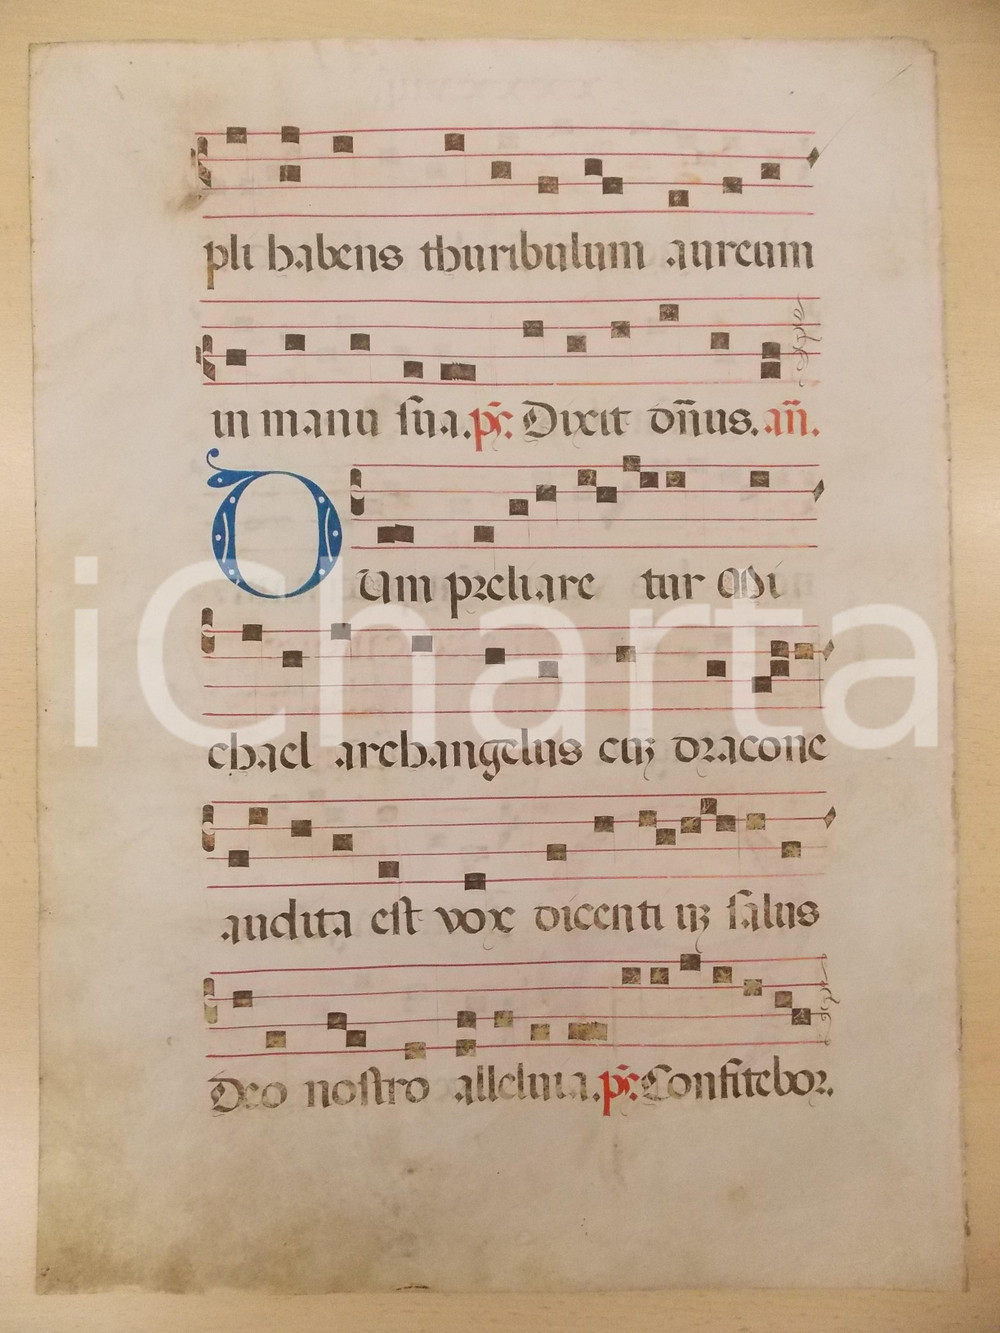 pli habens thuribulum aureum
in manu sua. ps. Dixit dn̄us. an̄.
Dum preliare tur Mi
chael archangelus cuꝫ dracone
audita est vox dicenti uꝫ salus
Deo nostro alleluia. ps. Confitebor.
iCharta